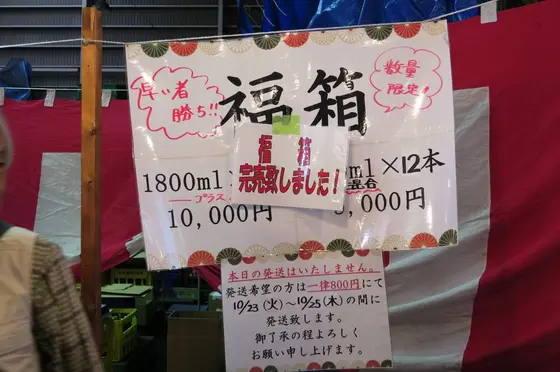 早い者
勝ち!!
福箱
数量
限定!
福箱
完売致しました!
1800ml×
プラス
10,000円
ml×12本
混合
,000円
本日の発送はいたしません。
発送希望の方は一律800円にて
10/23(火)〜10/25(木)の間に
発送致します。
御了承の程よろしく
お願い申し上げます。